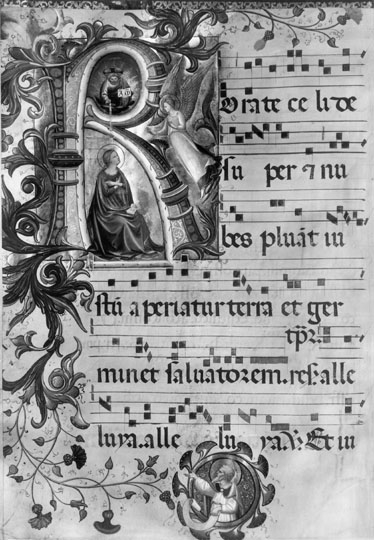 R
orate celi de
su per ⁊ nu
bes pluāt iu
stū aperiatur terra et ger
tp̄r
minet saluatorem. res. alle
luya. alle lu ya. V. Et iu